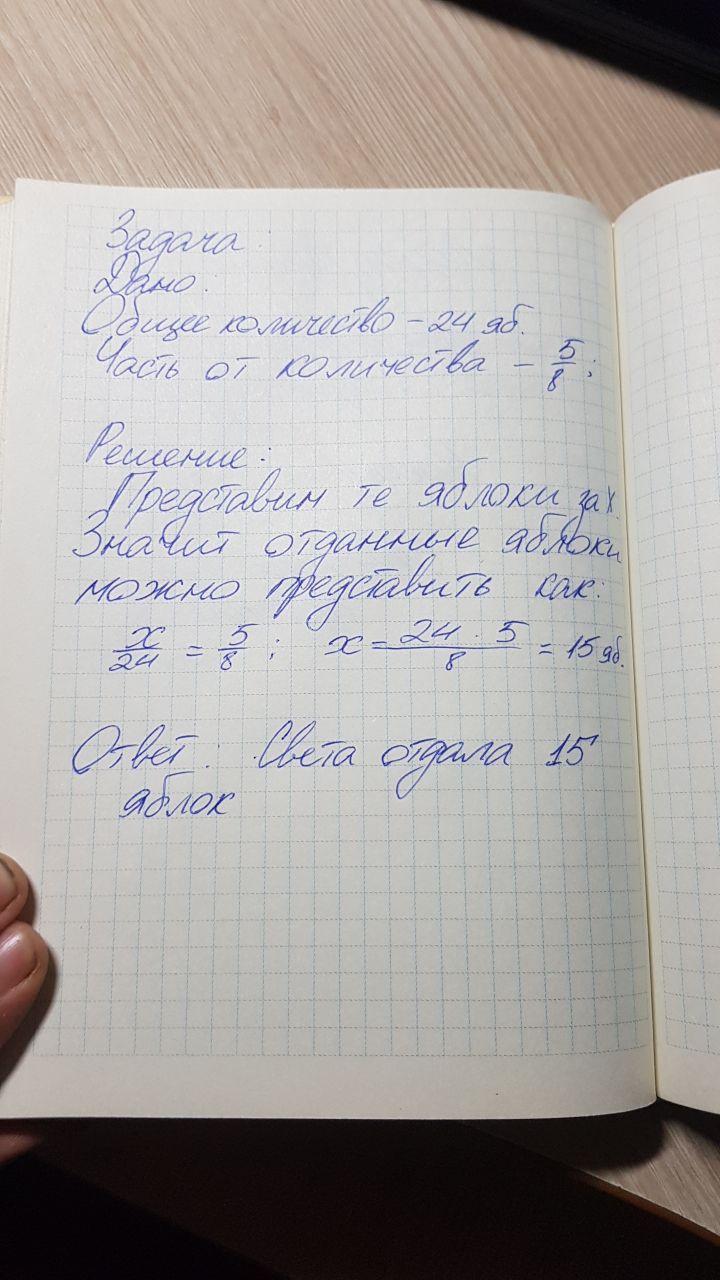 Задача:
Дано:
Общее количество – 24 яб.
Часть от количества – 5/8;
Решение:
Представим те яблоки за х.
Значит отданные яблоки
можно представить как:
x/24 = 5/8; x = 24 · 5/8 = 15 яб.
Ответ: Света отдала 15
яблок